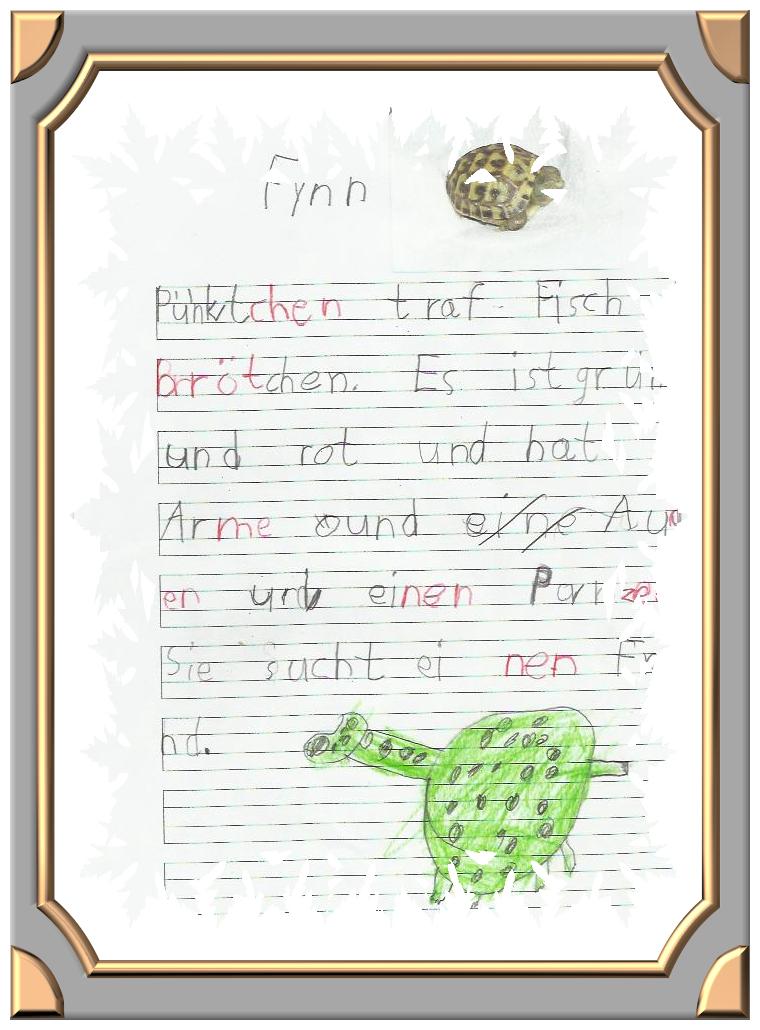 Fynn
Pünktchen traf Fisch
Brrötchen. Es ist grü
und rot und hat
Arme und eine Au
en und einen Pan
Sie sucht ei nen Fr
nd.